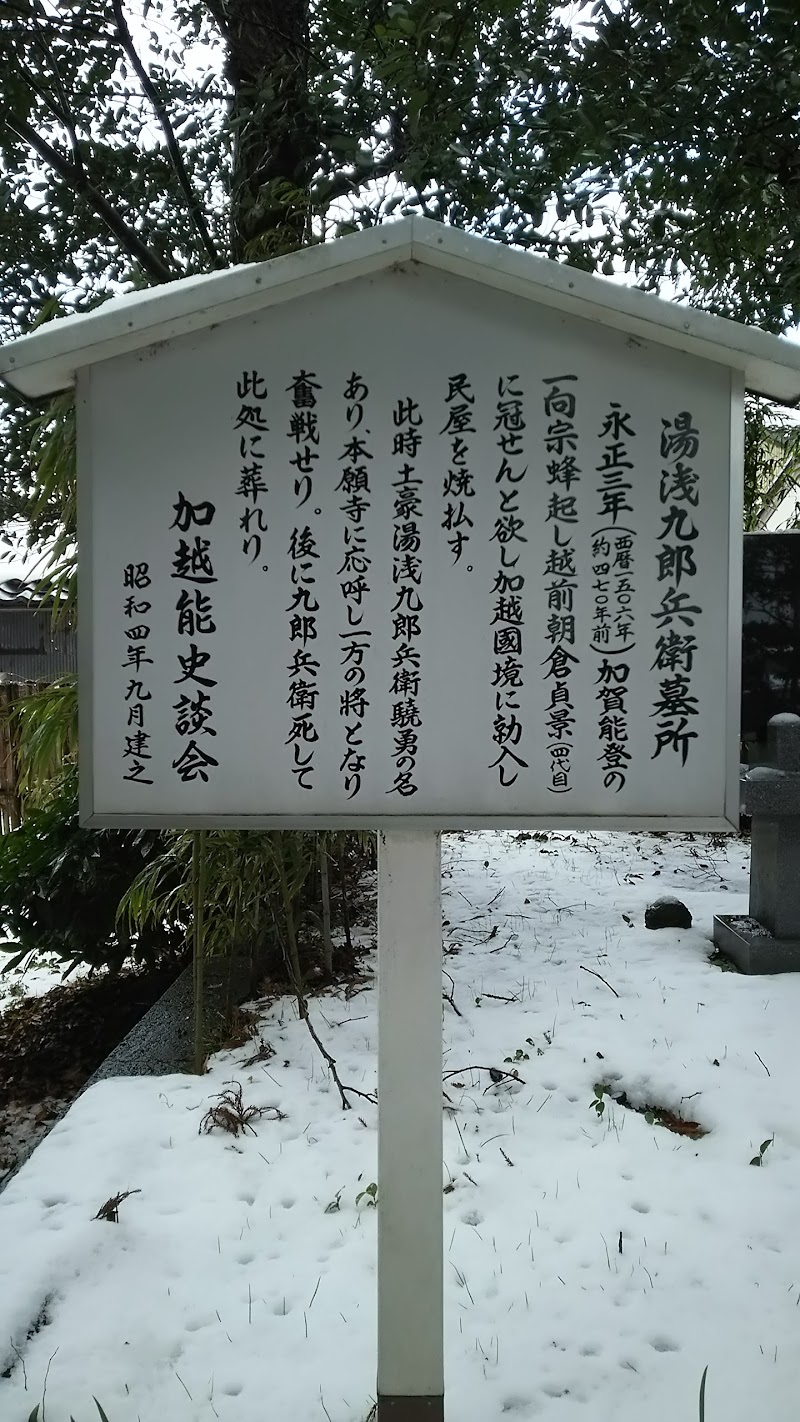 湯浅九郎兵衛墓所
永正三年(西暦一五〇六年 約四七〇年前)加賀能登の
一向宗蜂起し越前朝倉貞景(四代目)
に冠せんと欲し加越國境に勃入し
民屋を焼払す。
此時土豪湯浅九郎兵衛驍勇の名
あり、本願寺に応呼し一方の将となり
奮戦せり。後に九郎兵衛死して
此処に葬れり。
加越能史談会
昭和四年九月建之